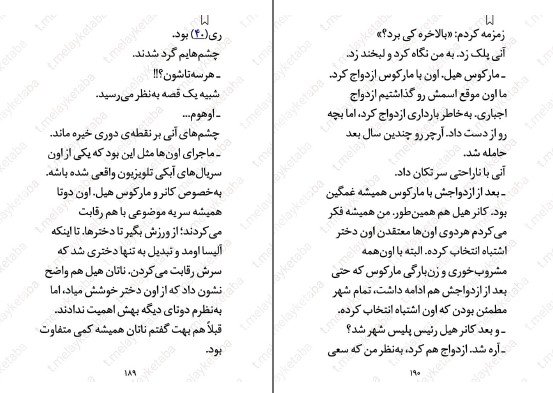 ری(۴۰) بود.
چشم‌هایم گرد شدند.
ـ هرسه‌تاشون؟!!
شبیه یک قصه به‌نظر می‌رسید.
ـ اوهوم...
چشم‌های آنی بر نقطه‌ی دوری خیره ماند.
ـ ماجرای اون‌ها مثل این بود که یکی از اون
سریال‌های آبکی تلویزیون واقعی شده باشه.
به‌خصوص کانر و مارکوس هیل. اون دوتا
همیشه سر یه موضوعی با هم رقابت
می‌کردند؛ از ورزش بگیر تا دخترها. تا اینکه
آلیسا اومد و تبدیل به تنها دختری شد که
سرش رقابت می‌کردن. ناتان هیل هم واضح
نشون داد که از اون دختر خوشش میاد، اما
به‌نظرم دوتای دیگه بهش اهمیت ندادند.
قبلاً هم بهت گفتم ناتان همیشه کمی متفاوت
بود.
۱۸۹
زمزمه کردم: «بالاخره کی برد؟»
آنی پلک زد. به من نگاه کرد و لبخند زد.
ـ مارکوس هیل. اون با مارکوس ازدواج کرد.
ما اون موقع اسمش رو گذاشتیم ازدواج
اجباری. به‌خاطر بارداری ازدواج کرد، اما بچه
رو از دست داد. آرچر رو چندین سال بعد
حامله شد.
آنی با ناراحتی سر تکان داد.
ـ بعد از ازدواجش با مارکوس همیشه غمگین
بود. کانر هیل هم همین‌طور. من همیشه فکر
می‌کردم هردوی اون‌ها معتقدن اون دختر
اشتباه انتخاب کرده. البته با اون‌همه
مشروب‌خوری و زن‌بارگی مارکوس که حتی
بعد از ازدواجش هم ادامه داشت، تمام شهر
مطمئن بودن که اون اشتباه انتخاب کرده.
ـ و بعد کانر هیل رئیس پلیس شهر شد؟
ـ آره شد. ازدواج هم کرد، به‌نظر من که سعی
۱۹۰